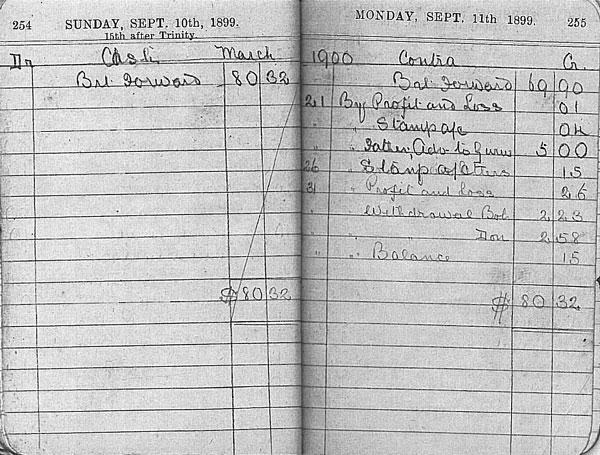 254 SUNDAY, SEPT. 10th, 1899.
15th after Trinity.
Dr Cash March
Brt Forward 80 32
$ 80 32
MONDAY, SEPT. 11th 1899. 255
1900 Contra Cr.
Brt Forward 69 90
21 By Profit and Loss 01
" " Stamp a/c 04
" " Father, Adv. to 5 00
26 " Stamp a/c 15
31 " Profit and Loss 26
" " Withdrawal Bob 2 23
" " Don 2 58
" " Balance 15
$ 80 32